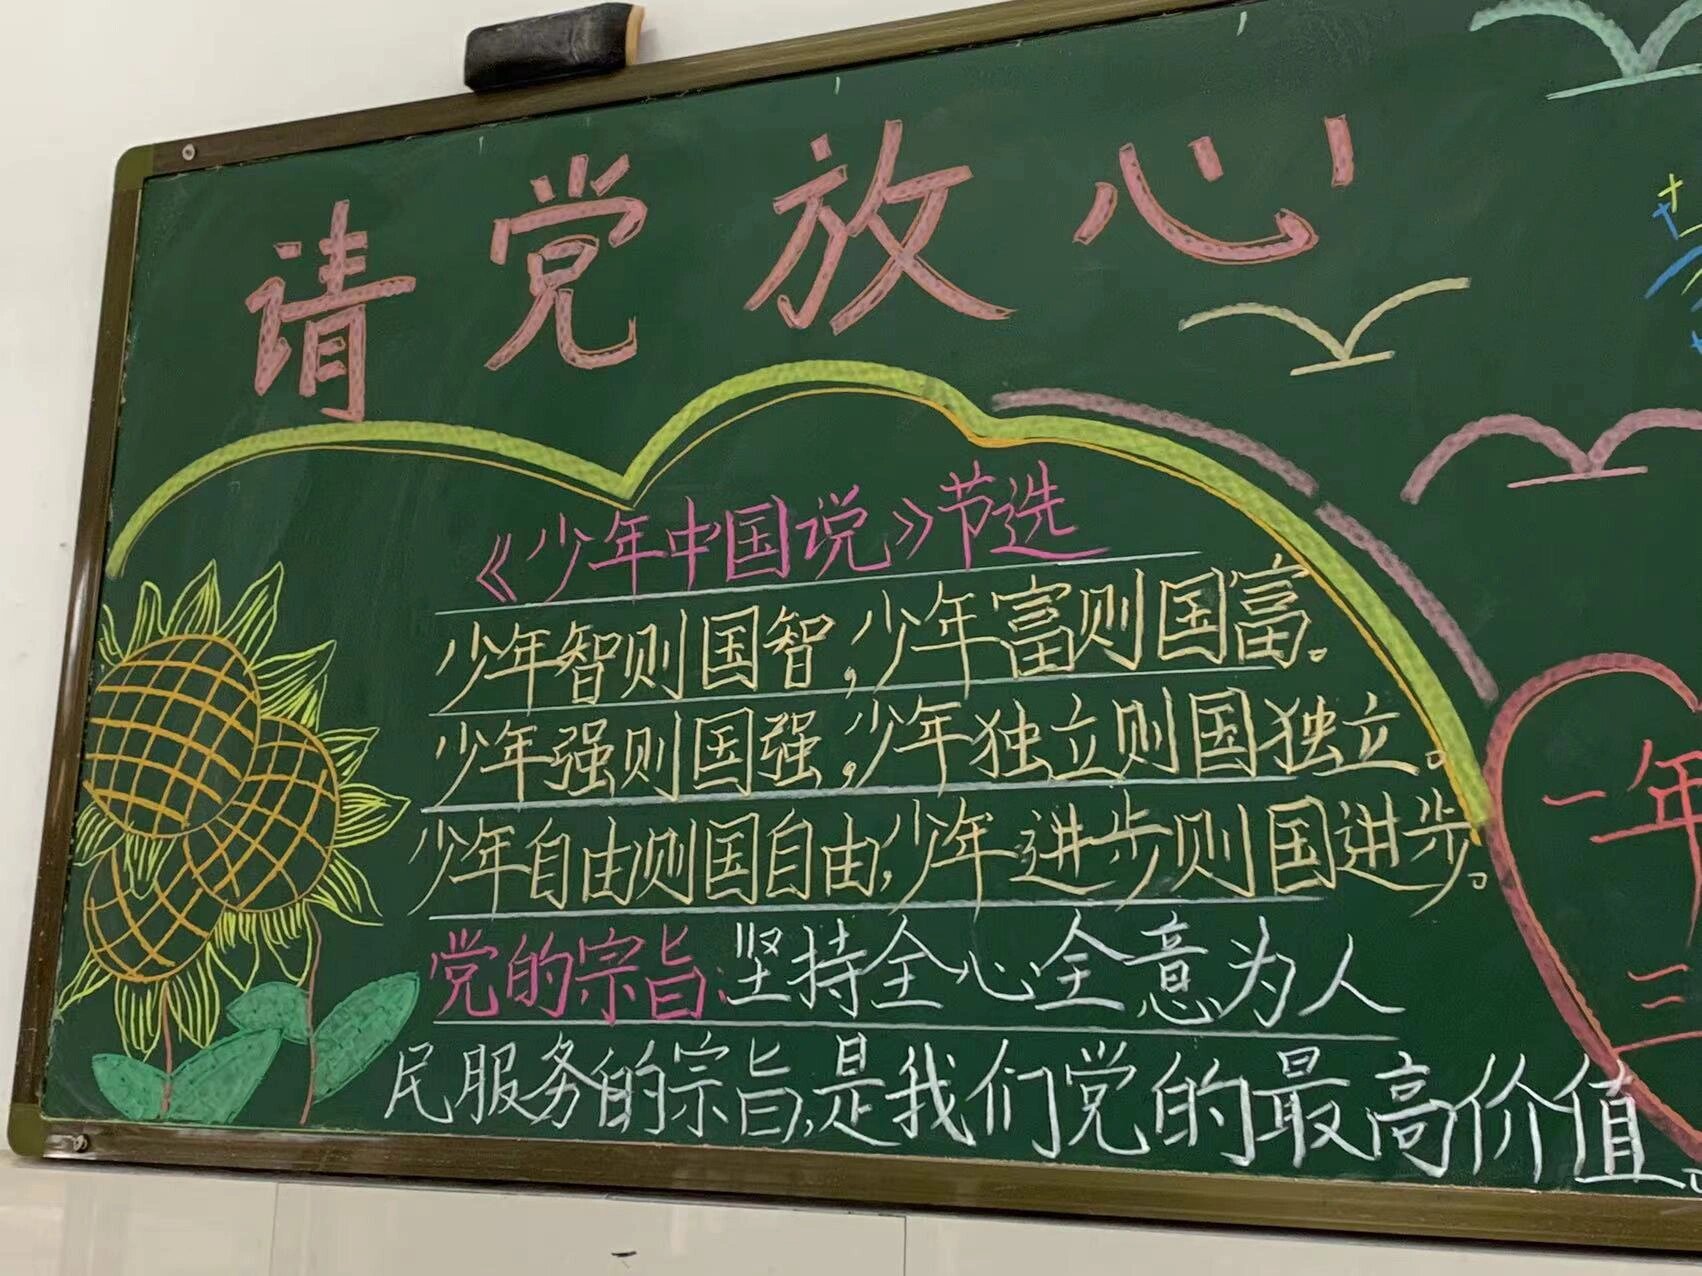 请党放心
《少年中国说》节选
少年智则国智，少年富则国富。
少年强则国强，少年独立则国独立。
少年自由则国自由，少年进步则国进步。
党的宗旨：坚持全心全意为人
民服务的宗旨，是我们党的最高价值。
一年
三